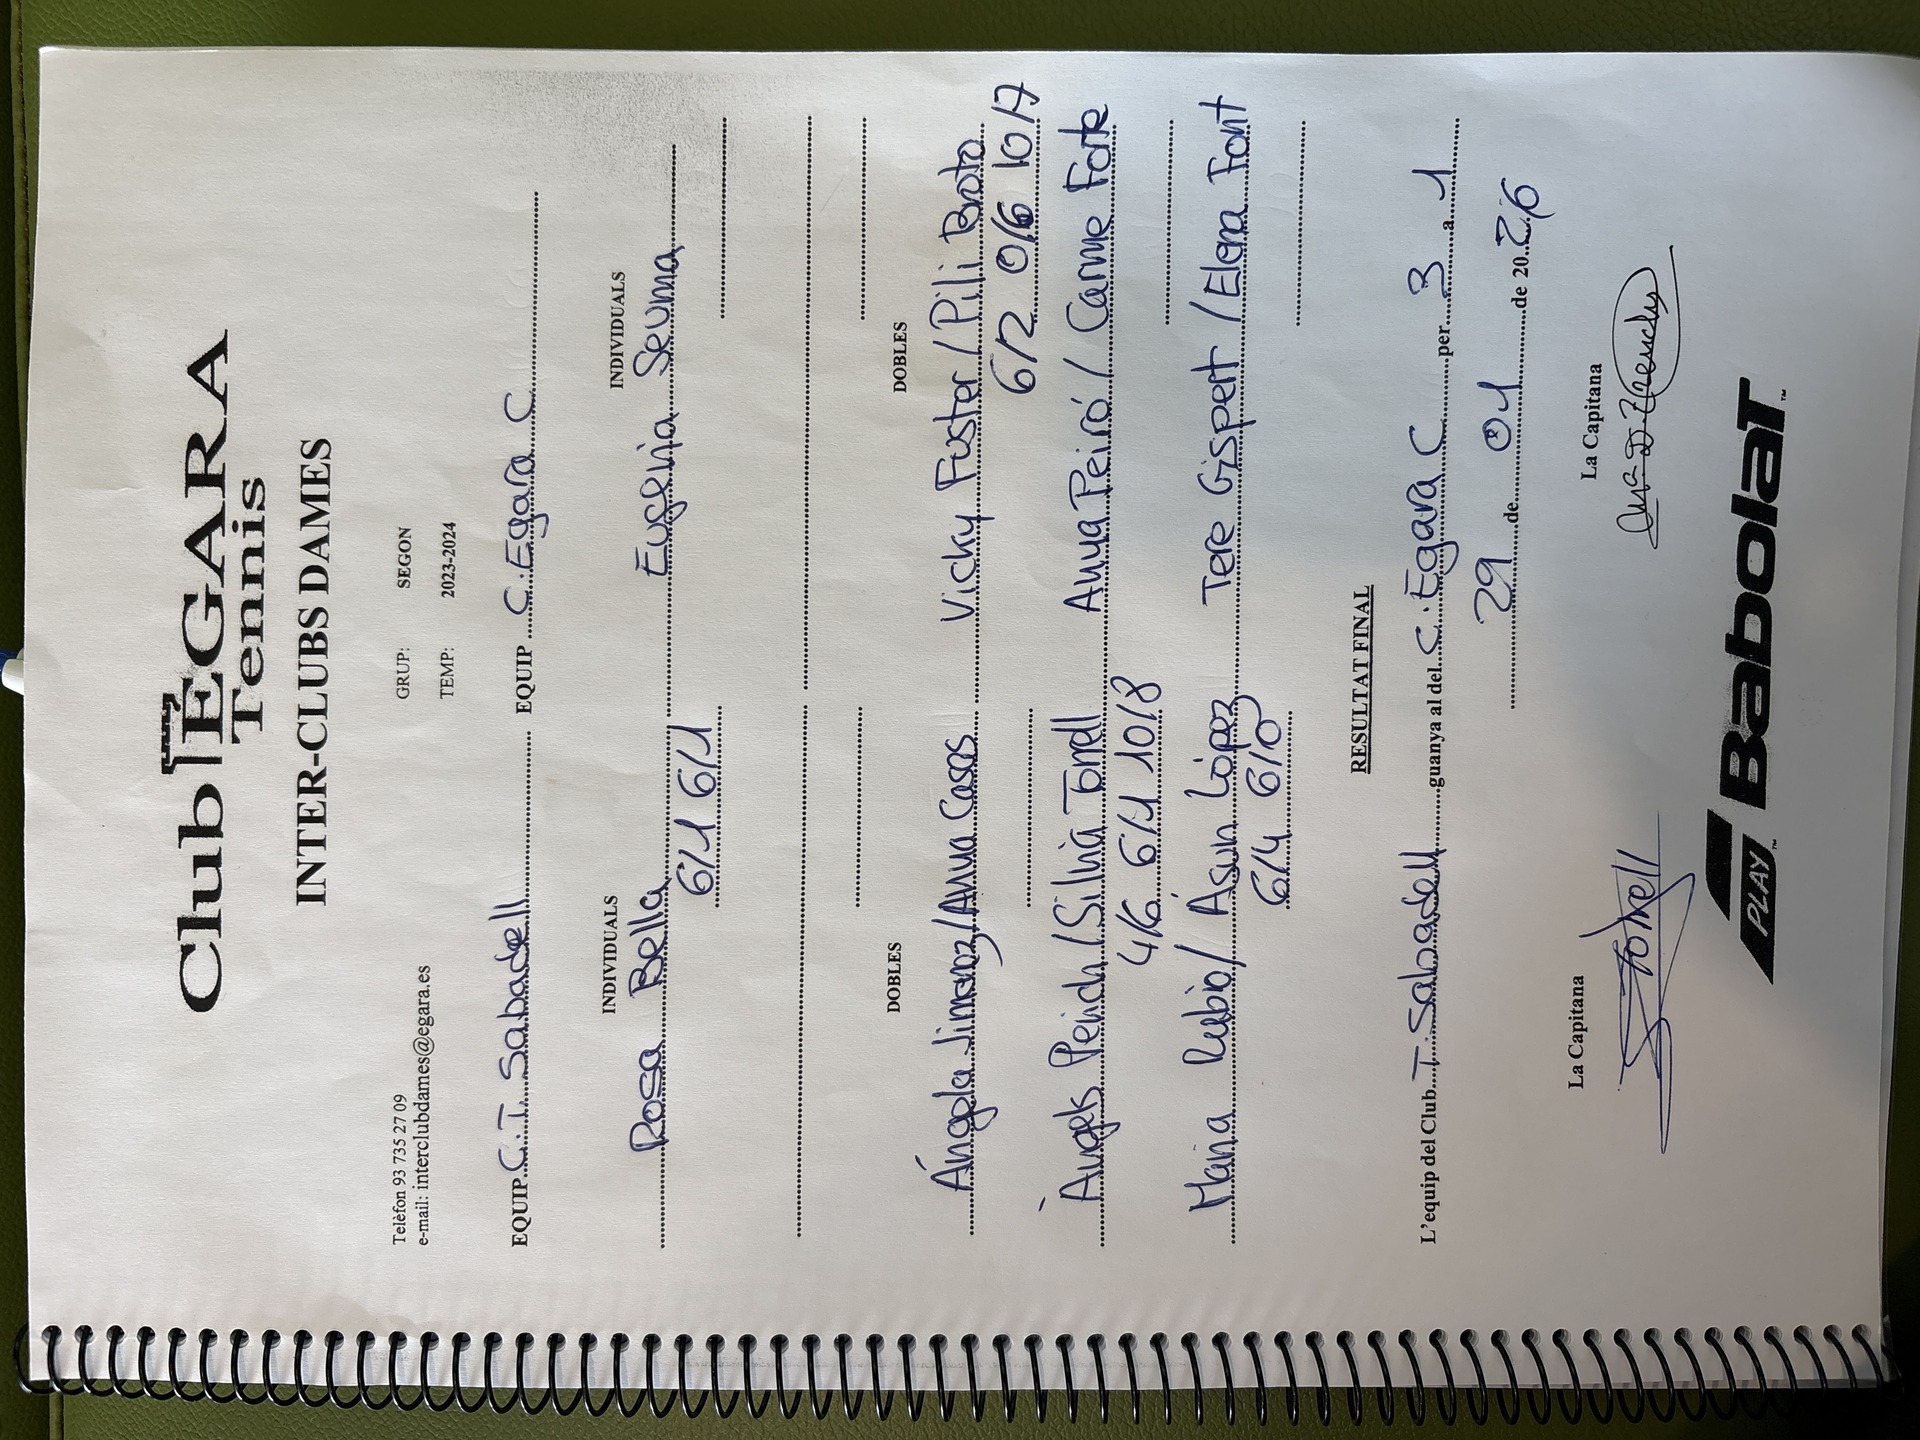 Club EGARA
Tennis
INTER-CLUBS DAMES
Telèfon 93 735 27 09
e-mail: interclubdames@egara.es
GRUP: SEGON
TEMP: 2023-2024
EQUIP C.T. Sabadell EQUIP C. Egara C
INDIVIDUALS INDIVIDUALS
Rosa Bella Eugenia Seuma
6/1 6/1
DOBLES DOBLES
Ángela Jimenez/Anna Casas Vicky Fuster/Pili Broto
6/2 0/6 10/7
Àngels Peirich/Silvia Torrell Anna Peiró/Carme Forte
4/6 6/1 10/8
Maria Rubio/Asun López Tere Gispert/Elena Font
6/4 6/0
RESULTAT FINAL
L'equip del Club T. Sabadell guanya al del C. Egara C per 3 a 1
29 de 01 de 2026
La Capitana La Capitana
STorrell
PLAY Babolat